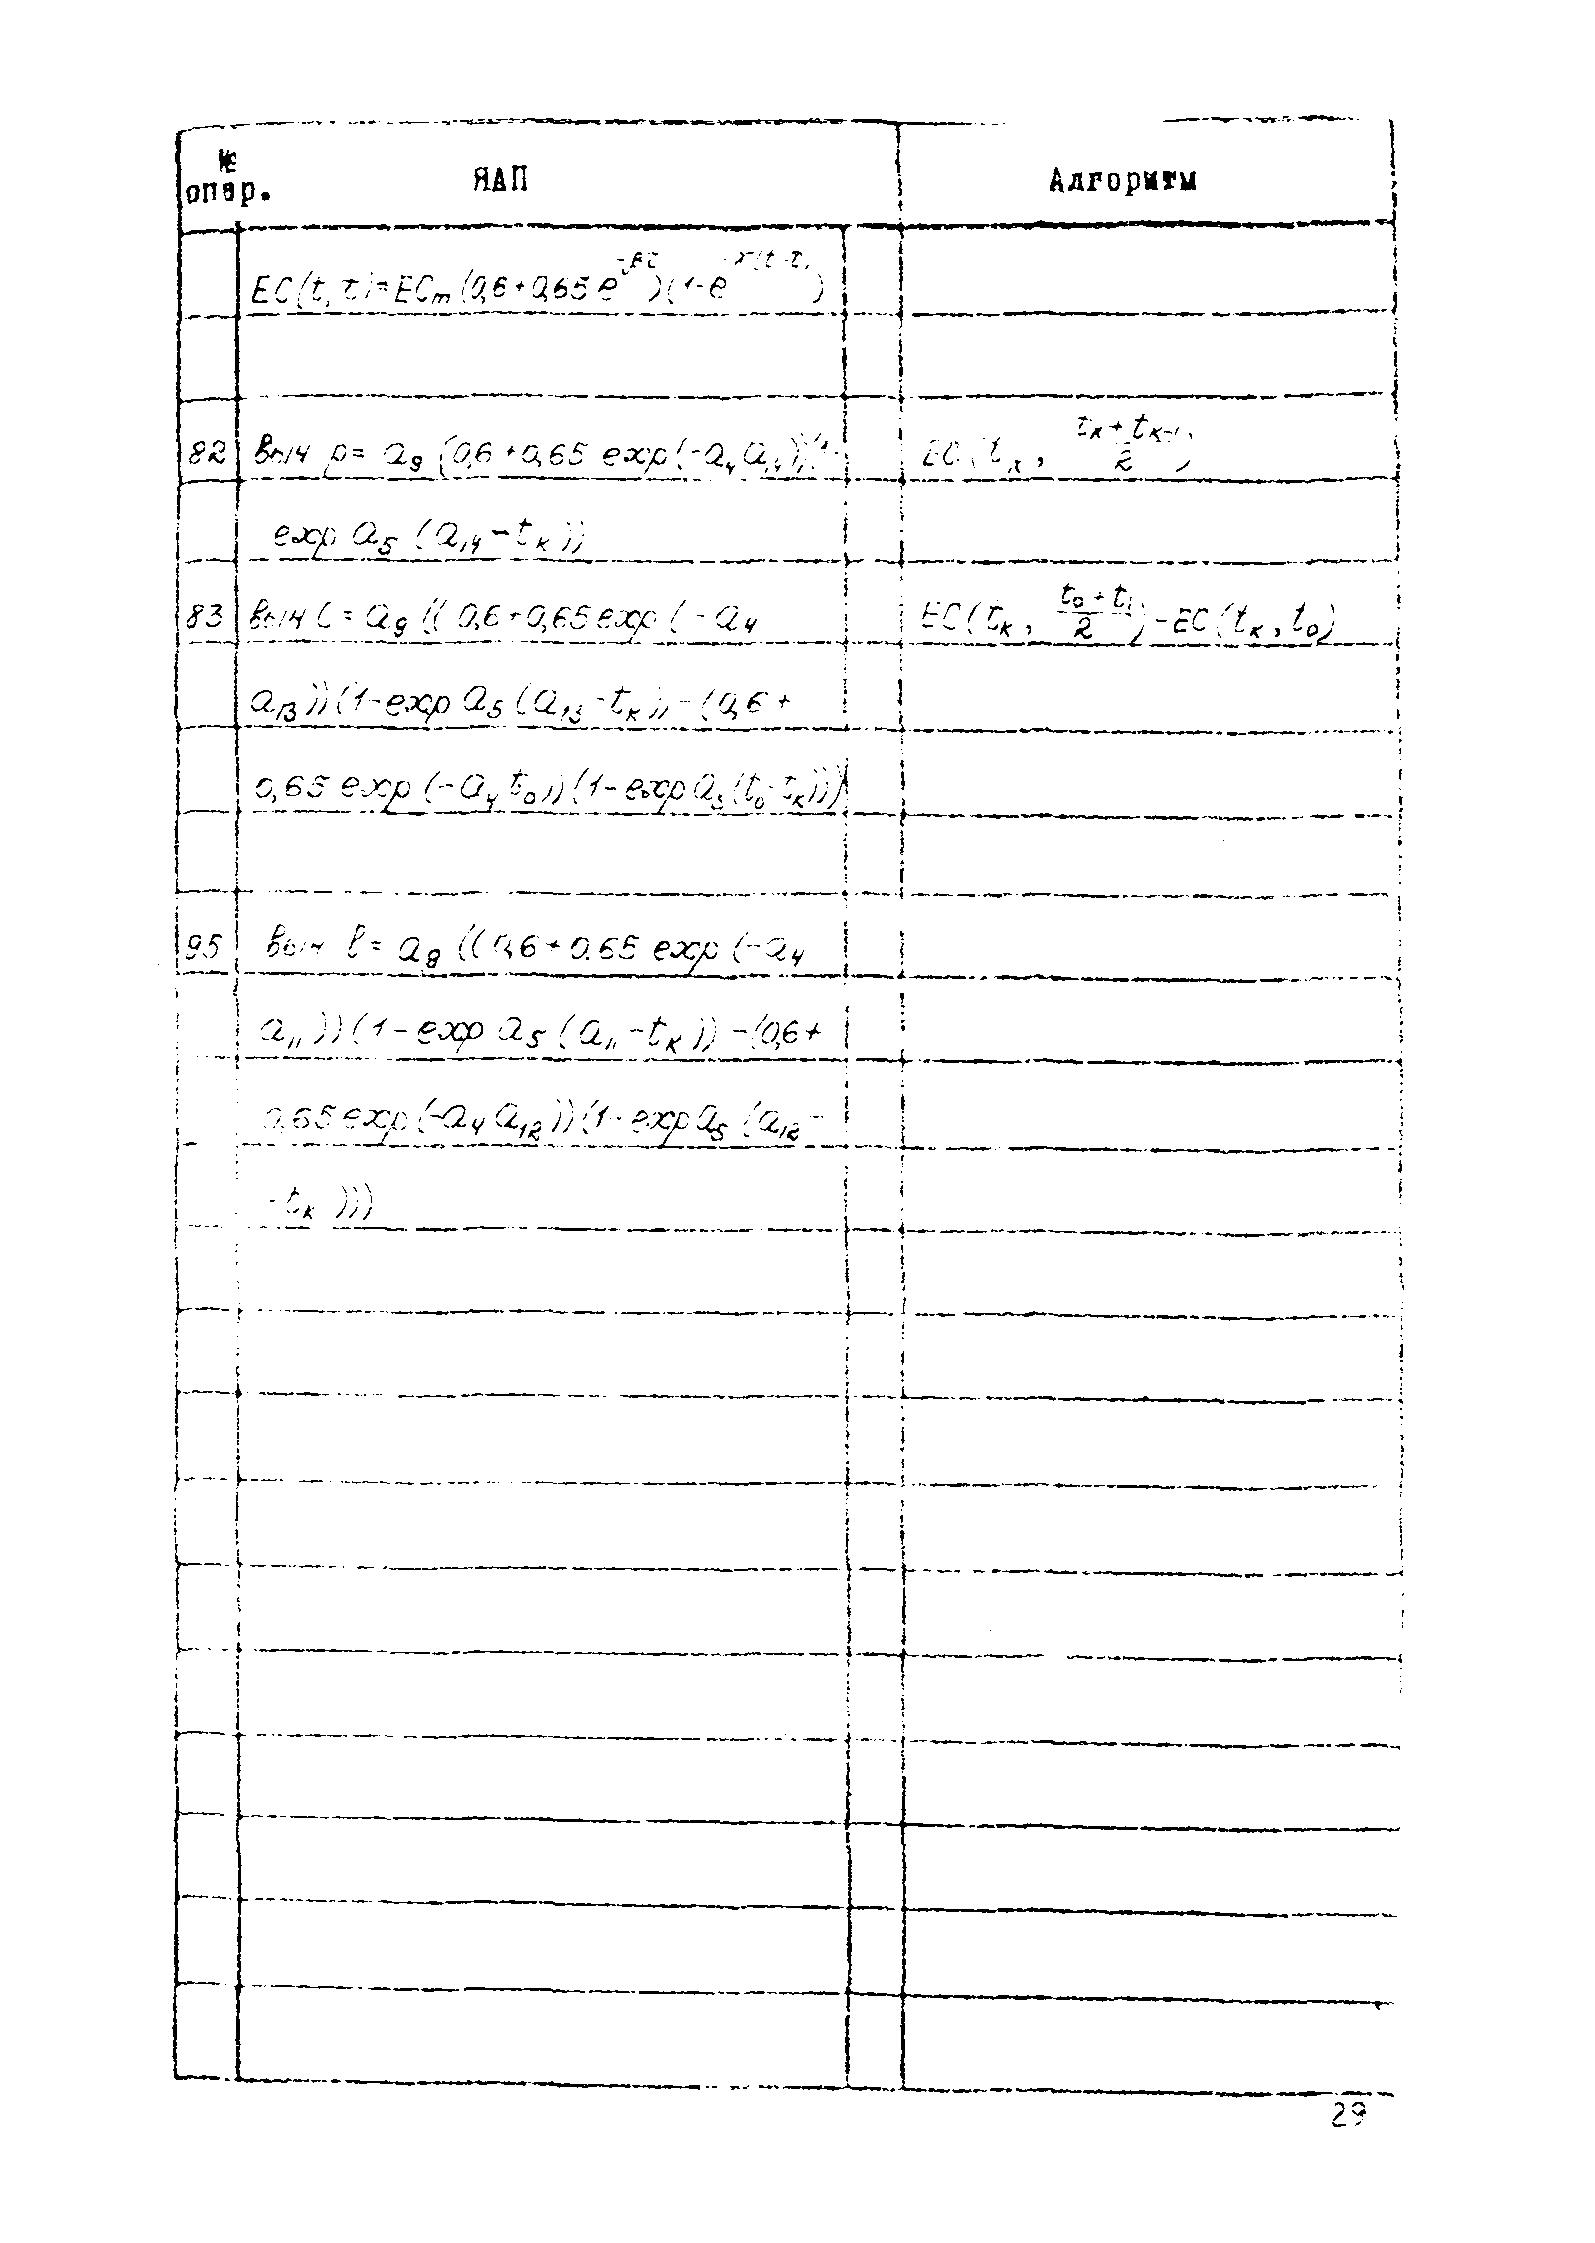 № опер. ЯАП Алгоритмы
EC(t, τ)=EC_m(0,6+0,65 e^{-βτ})(1-e^{-γ(t-τ)})
82 выч p= a₉ (0,6+0,65 exp(-a₄a₁₄))(1- EC(t_к, (t_к+t_{к-1})/2)
exp a₅ (a₁₄-t_к))
83 выч c= a₉ (( 0,6+0,65 exp (-a₄ EC(t_к, (t₀+t₁)/2)-EC(t_к, t₀)
a₁₃))(1-exp a₅ (a₁₃-t_к))-(0,6+
0,65 exp (-a₄t₀))(1-exp a₅(t₀-t_к)))
95 выч l= a₉ ((0,6+0.65 exp (-a₄
a₁₁))(1-exp a₅ (a₁₁-t_к))-(0,6+
0,65 exp(-a₄a₁₂))(1-exp a₅ (a₁₂-
-t_к)))
29